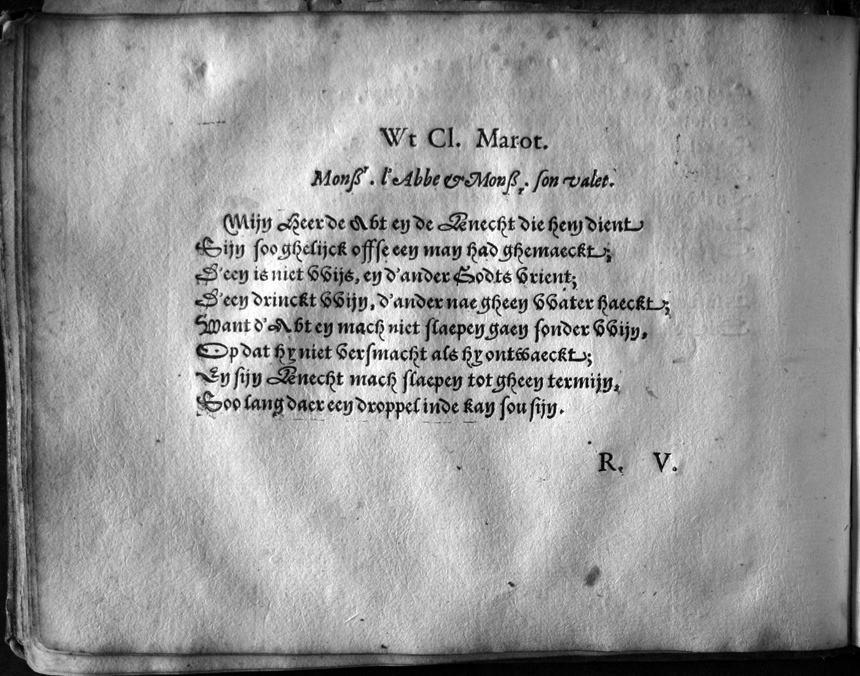 Wt Cl. Marot.
Monßr. l'Abbe & Monßr. son valet.
Mijn Heer de Abt en de Knecht die hem dient
Sijn soo ghelijck offse een man had ghemaeckt;
D'een is niet VVijs, en d'ander Godts Vrient;
D'een drinckt VVijn, d'ander nae gheen VVater haeckt;
Want d'Abt en mach niet slaepen gaen sonder VVijn,
Op dat hy niet versmacht als hy ontwaeckt;
En sijn Knecht mach slaepen tot gheen termijn,
Soo lang daer een droppel inde kan sou sijn.
R. V.